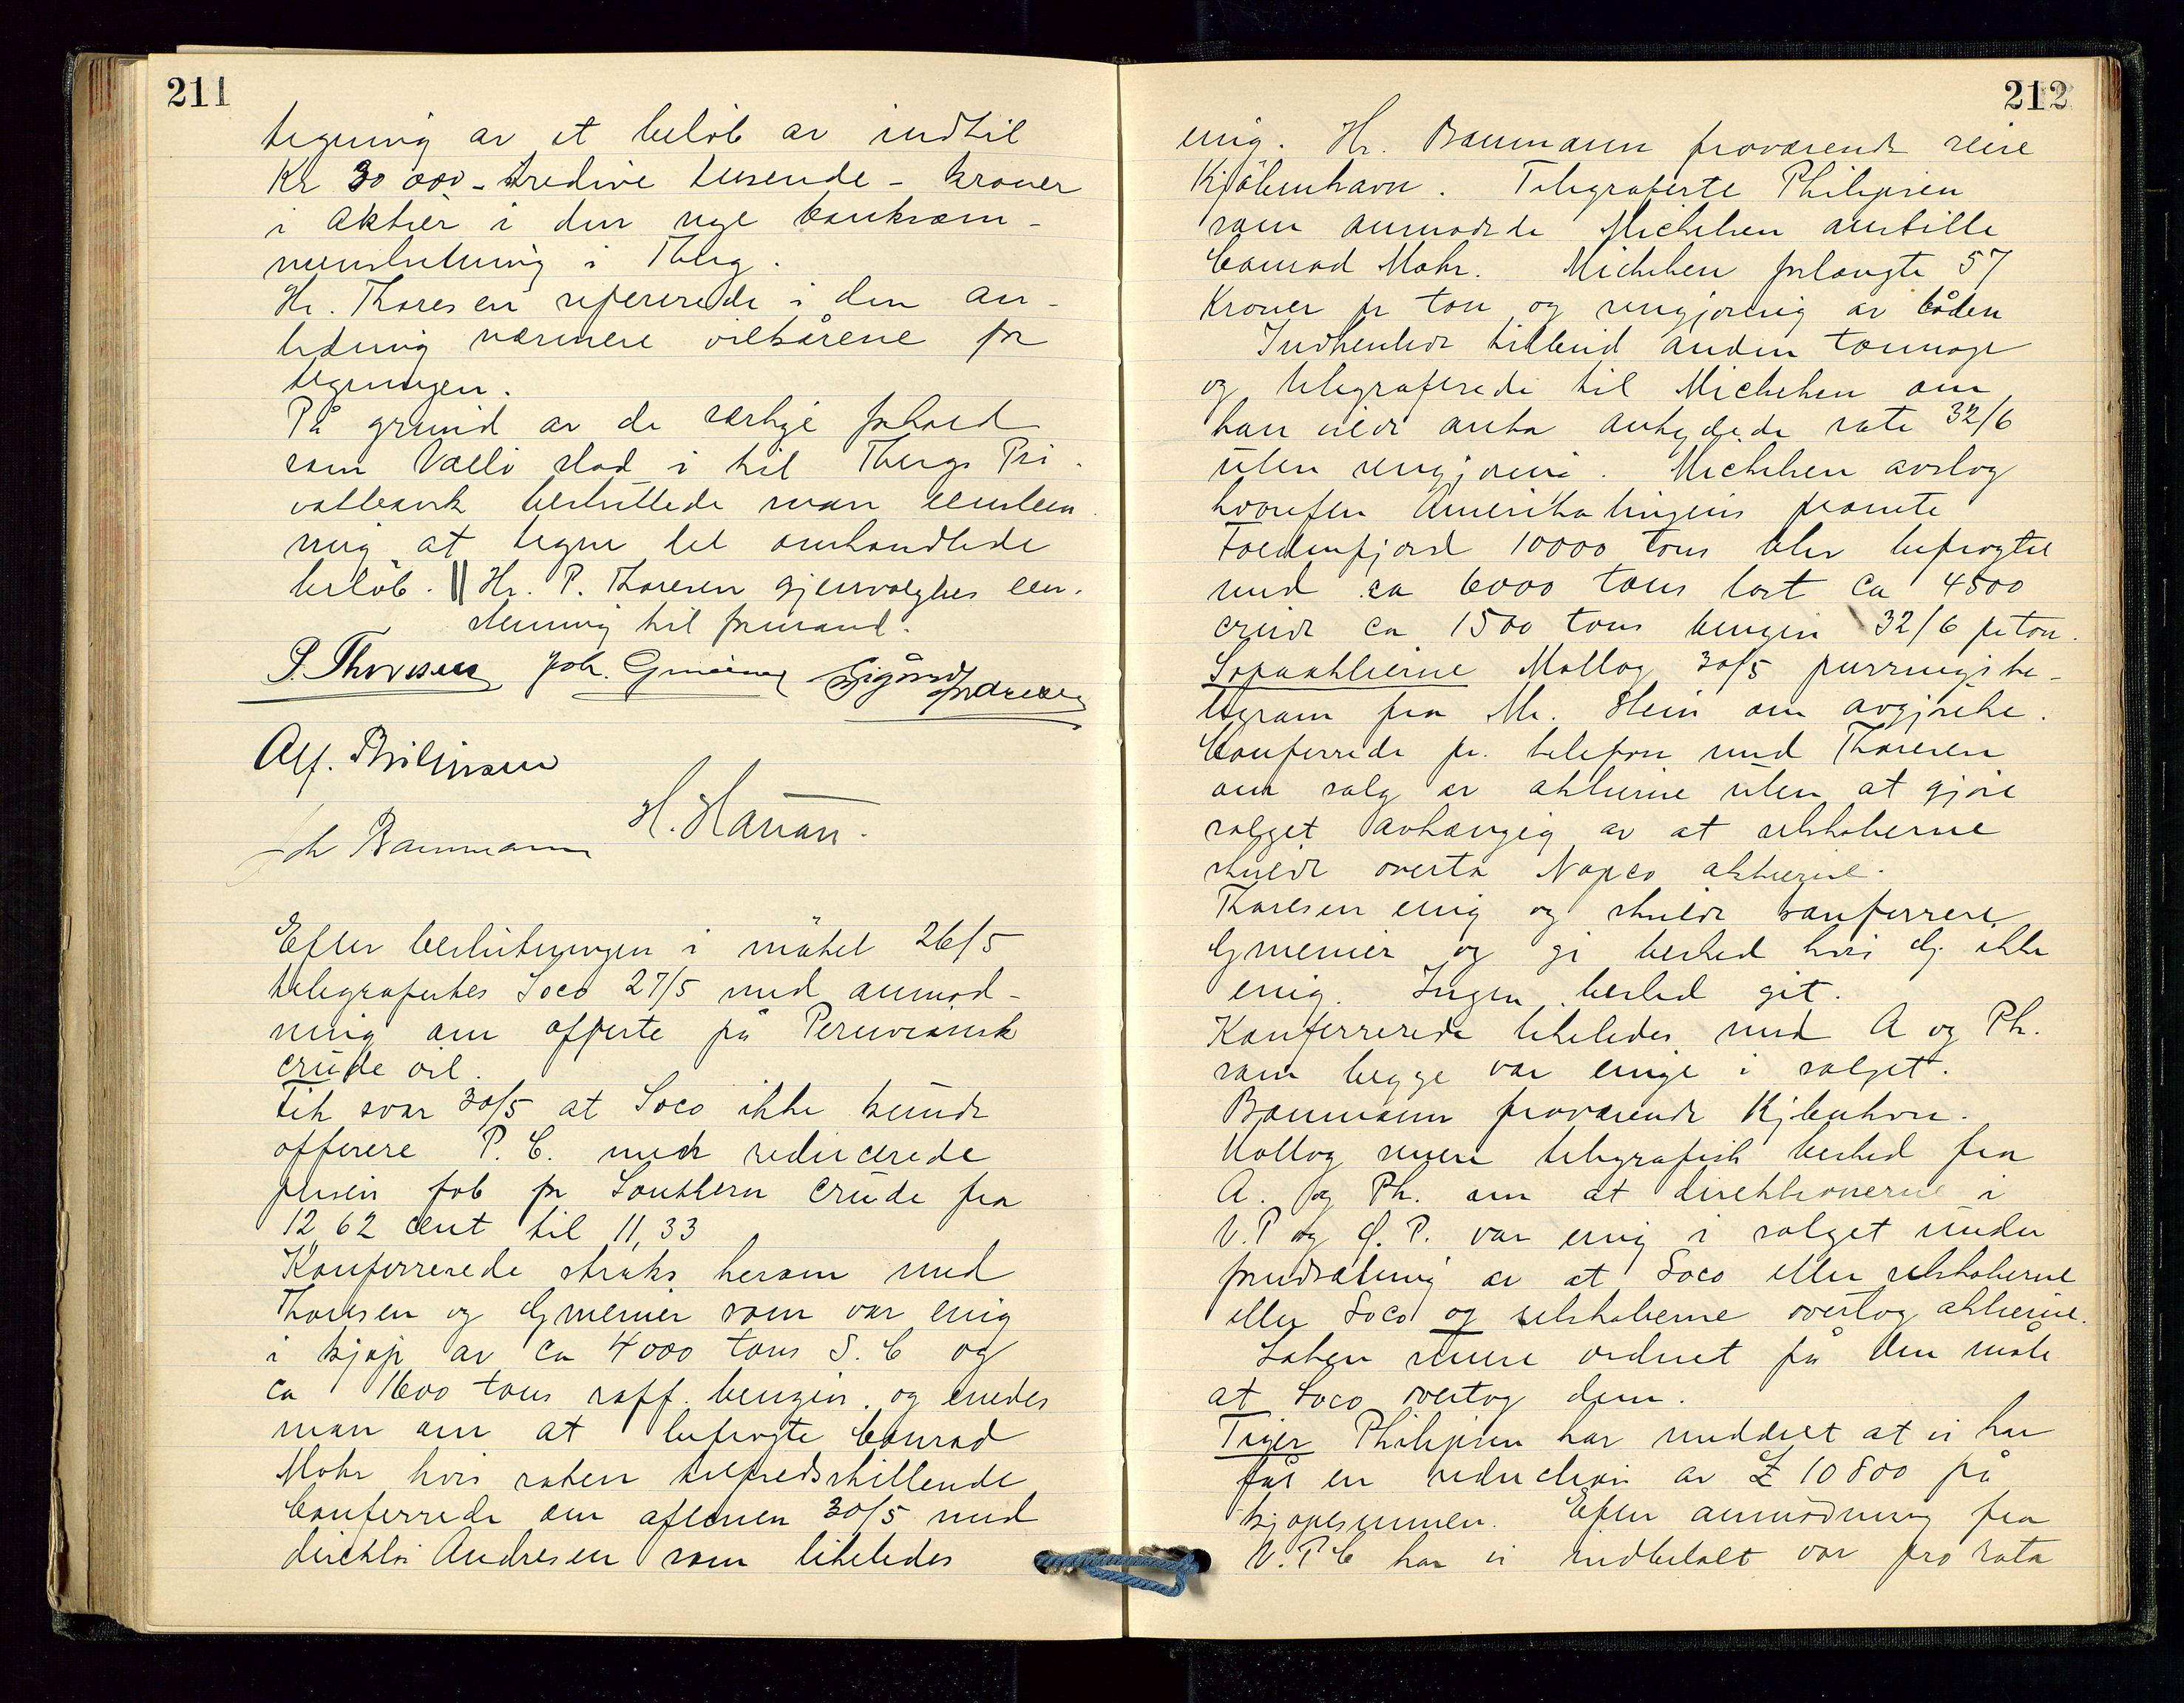 211
tegning av et beløb av indtil
Kr 30 000 - tredive tusende - kroner
i aktier i den nye banksam-
menslutning i Tbrg.
Hr. Thoresen refererede i den an-
ledning nærmere vilkårene for
tegningen.
På grund av de særlige forhold
som Vallø stod i til Tbergs Pri-
vatbank besluttede man eenstem-
mig at tegne det omhandlede
beløb. || Hr. P. Thoresen gjenvalgtes een-
stemmig til formand.
P. Thoresen Joh. Gmeiner Sigurd Andresen
Alf. Philipsen
Joh Baumann H. Hansen.
Efter beslutningen i mötet 26/5
telegrafertes Soco 27/5 med anmod-
ning om offerte på Peruviansk
crude oil.
Fik svar 30/5 at Soco ikke kunde
offerere P. C. men reducerede
prisen fob for Southern crude fra
12,62 cent til 11,33
Konfererede straks herom med
Thoresen og Gmeiner som var enig
i kjøp av ca 4000 tons S. C og
ca 1600 tons raff. benzin, og enedes
man om at befragte Conrad
Mohr hvis raten tilfredsstillende
Conferrede om aftenen 30/5 med
direktör Andresen som likeledes
212
enig. Hr. Baumann fraværende reise
Kjöbenhavn. Telegraferte Philipsen
som anmodede Michelsen anstille
Conrad Mohr. Michelsen forlangte 57
Kroner pr ton og rengjøring av båden
Indhentede tilbud anden tonnage
og telegraferede til Michelsen om
han vilde anta antydede rate 32/6
uten rengjöring. Michelsen avslog
hvorefter Amerikalinjens prompte
Foldenfjord 10000 tons blev befragtet
med ca 6000 tons last ca 4500
crude ca 1500 tons benzin 32/6 pr ton.
Sopaaktierne Mottog 30/5 purringste-
legram fra Mr. Klein om avgjörelse.
Conferrede pr. telefon med Thoresen
om salg av aktierne uten at gjöre
salget avhængig av at selskaberne
skulde overta Nopco aktierne.
Thoresen enig og skulde konferrere
Gmeiner og gi besked hvis G. ikke
enig. Ingen besked git.
Konfererede likeledes med A og Ph.
som begge var enige i salget.
Baumann fraværende Kjbenhvn.
Mottog senere telegrafisk besked fra
A. og Ph. om at direktionerne i
V. P og Ø. P. var enig i salget under
forudsætning av at Soco eller selskaberne
eller Soco og selskaberne overtog aktierne.
Saken senere ordnet på den måte
at Soco overtog dem.
Tiger Philipsen har meddelt at vi har
fåt en reduction av £ 10800 på
kjøpesummen. Efter anmodning fra
V. P C har vi indbetalt vor pro rata